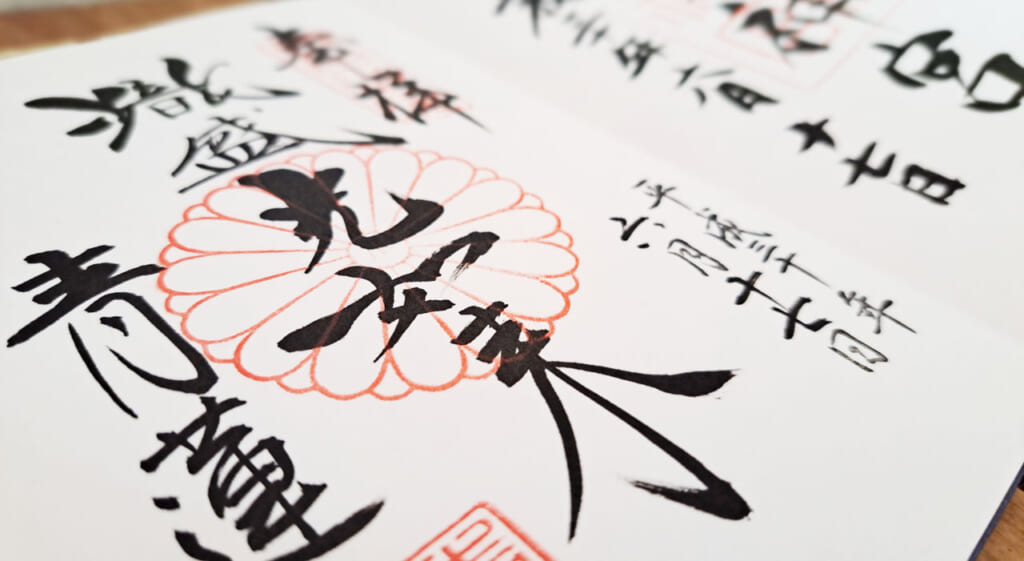 神宮
年六月十七日
平成三十年
六月十七日
奉拝
熾盛
光如来
青蓮